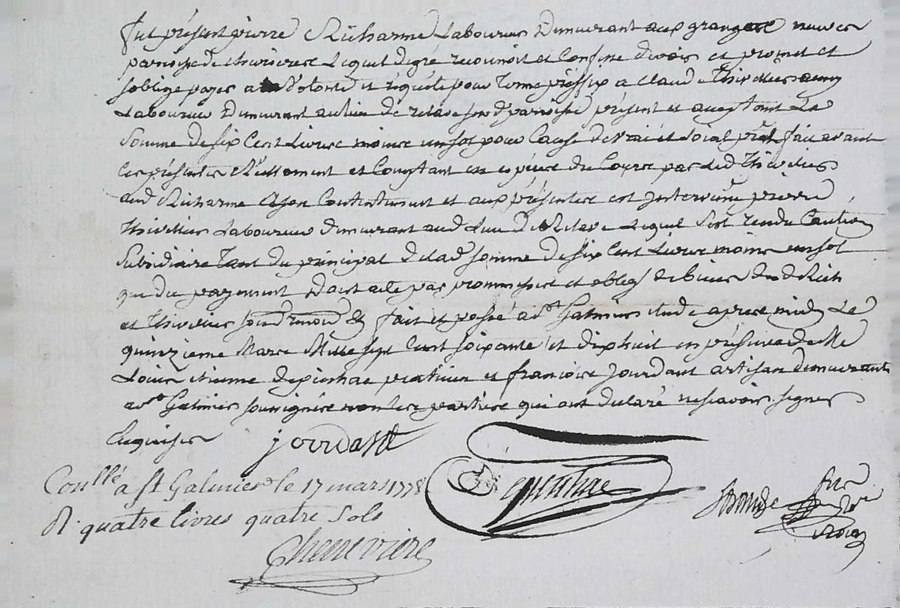 fut présent pierre Richarme Laboureur demeurant aux granges neuves
paroisse de chevrieres Lequel de gré reconnoit et Confesse devoir et promet et
soblige payer a volonté et requete pour terme préffix a claude thivillier aussy
Laboureur demeurant au lieu de relave susd paroisse présent et acceptant La
Somme de six Cent Livres moins un sol pour Cause de vrai et loial prêt fait avant
ces présentes Réellement et Comptant en espèces du Cours par led Thivillier
aud Richarme a son Contentement et aux présentes est Intervenu pierre
thivillier Laboureur demeurant aud Lieu de Relave Lequel s'est rendu Caution
Subsidiaire tant du principal de lad somme de six Cent Livres moins un sol
que du payement dont acte par promesses et oblig de biens desd Rich
et thivillier fait et passé a st Galmier étude apres midy Le
quinzieme Mars Mille sept Cent soixante et dix huit en présence de Me
Louis etienne depinhac praticien et francois jourdant artisan demeurants
a st Galmier soussignés non les parties qui ont declaré ne scavoir signer
Enquises
jourdant
Conllé a St Galmier le 17 mars 1778
R. quatre livres quatre sols
Chenevière